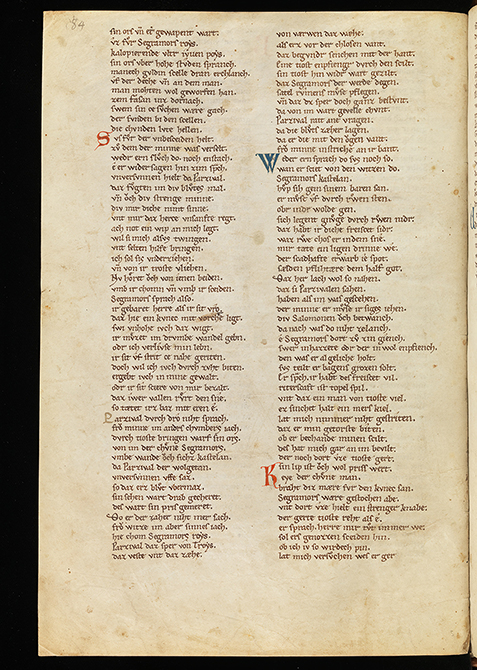 84
sin ors vñ er gewapent wart.
vz fv̊r Segramors roys.
kalopierende vlter iuven poys.
sin ors vber hohe stvden spranch.
manech gvldin schelle dran erchlanch.
vf der deche vñ an dem man.
man mohten wol geworfen han.
zem fasan inz dornach.
swem sin ze sv̊chen wære gach.
der fvnden bi den schellen.
die chvnden lvte hellen.
Svs fv̊r der vnbescheiden helt.
zv̊ dem der minne was verselt.
weder ern slv̊ch do noch enstach.
e er widersagen hin zim sprach.
vnversvnnen hielt da Parzival.
daz fv̊gten im div blv̊tes mal.
vñ ovch div strenge minne.
div mir diche nimt sinne.
vnt mir daz herze vnsanfte regt.
ach not ein wip an mich legt.
wil si mich alsvs twingen.
vnt selten hilfe bringen.
ich sol sis vnderziehen.
vñ von ir troste vliehen.
Nv hôret ovch von ienen beiden.
vmb ir chomn vñ vmb ir scheiden.
Segramors sprach also.
ir gebaret herre als ir sit vro.
daz hie ein kvnec mit volche ligt.
swi vnhohe ivch daz wigt.
ir mvzet im drvmbe wandel gebn.
odr ich verlivse min lebn.
ir sit vf strit ze nahe geriten.
doch wil ich ivch dvrch zvht biten.
ergebt ivch in mine gewalt.
odr ir sit schiere von mir bezalt.
daz iwer vallen rv̊rt den sne.
so tætet irz baz mit eren e.
Parzival dvrch dro niht sprach.
frŏ minne im anders chvmbers iach.
dvrch tioste bringen warf sin ors.
von im der chv̊ne Segramors.
vmbe wande ovch sichz kastelan.
da Parzival der wolgetan.
vnversvnnen vffe saz.
so daz erz blv̊t vbermaz.
sin sehen wart drab gecheret.
des wart sin pris gemeret.
Do er der zaher niht mer sach.
frŏ witze im aber sinnes iach.
hie chom Segramors roys.
Parzival daz sper von Troys.
daz veste vnt daz zæhe.
von verwen daz wæhe.
als erz vor der chlosen vant.
daz begvnder senchen mit der hant.
eine tiost enpfienger dvrch den schilt.
sin tiost hin wider wart gezilt.
daz Segramors der werde degen.
satel rv̊mens mv̊se pflegen.
vñ daz dez sper doch ganz bestv̊nt.
da von im wart gevelle chvnt.
Parzival reit ane vragen.
da die blv̊tes zæher lagen.
da er die mit den ovgen vant.
frŏ minne instrichte an ir bant.
Weder ern sprach do svs noch so.
wan er schiet von den witzen do.
Segramors kastelan.
hv̊p sich gein sinem baren san.
er mv̊se vf dvrch rv̊wen sten.
obr inder wolde gen.
sich legent gnv̊ge dvrch rv̊wen nider.
daz habt ir diche freischet sider.
waz rv̊we chos er in dem sne.
mir tæte ein ligen drinne we.
der scadhafte erwarb ie spot.
sælden pflihtære dem half got.
Daz her lach wol so nahen.
daz si Parzivalen sahen.
haben als im was geschehen.
der minne er mv̊se ir siges iehen.
div Salomonen ŏch betwanch.
da nach was do niht zelanch.
e Segramors dort zv̊ zin giench.
swer inhazzete odr der in wol enpfiench.
den was er al geliche holt.
svs teilt er bagens grozen solt.
Er sprach. ir habt des freischet vil.
ritterschaft ist topel spil.
vnt daz ein man von tioste viel.
ez sinchet halt ein mers kiel.
lat mich nimmer niht gestriten.
daz er min getorste biten.
ob er bechande minen schilt.
des hat mich gar an im bevilt.
der noch dort vze tioste gert.
sin lip ist ŏch wol pris wert.
Keye der chv̊ne man.
braht diz mære fvr den kvnec san.
Segramors wære gestochen abe.
vnt dort vze hielt ein strenger knabe.
der gerte tioste reht als e.
er sprach. herre mir tv̊t immer we.
sol ers genozzen scheiden hin.
ob ich iv so wirdech pin.
lat mich versv̊chen wes er ger